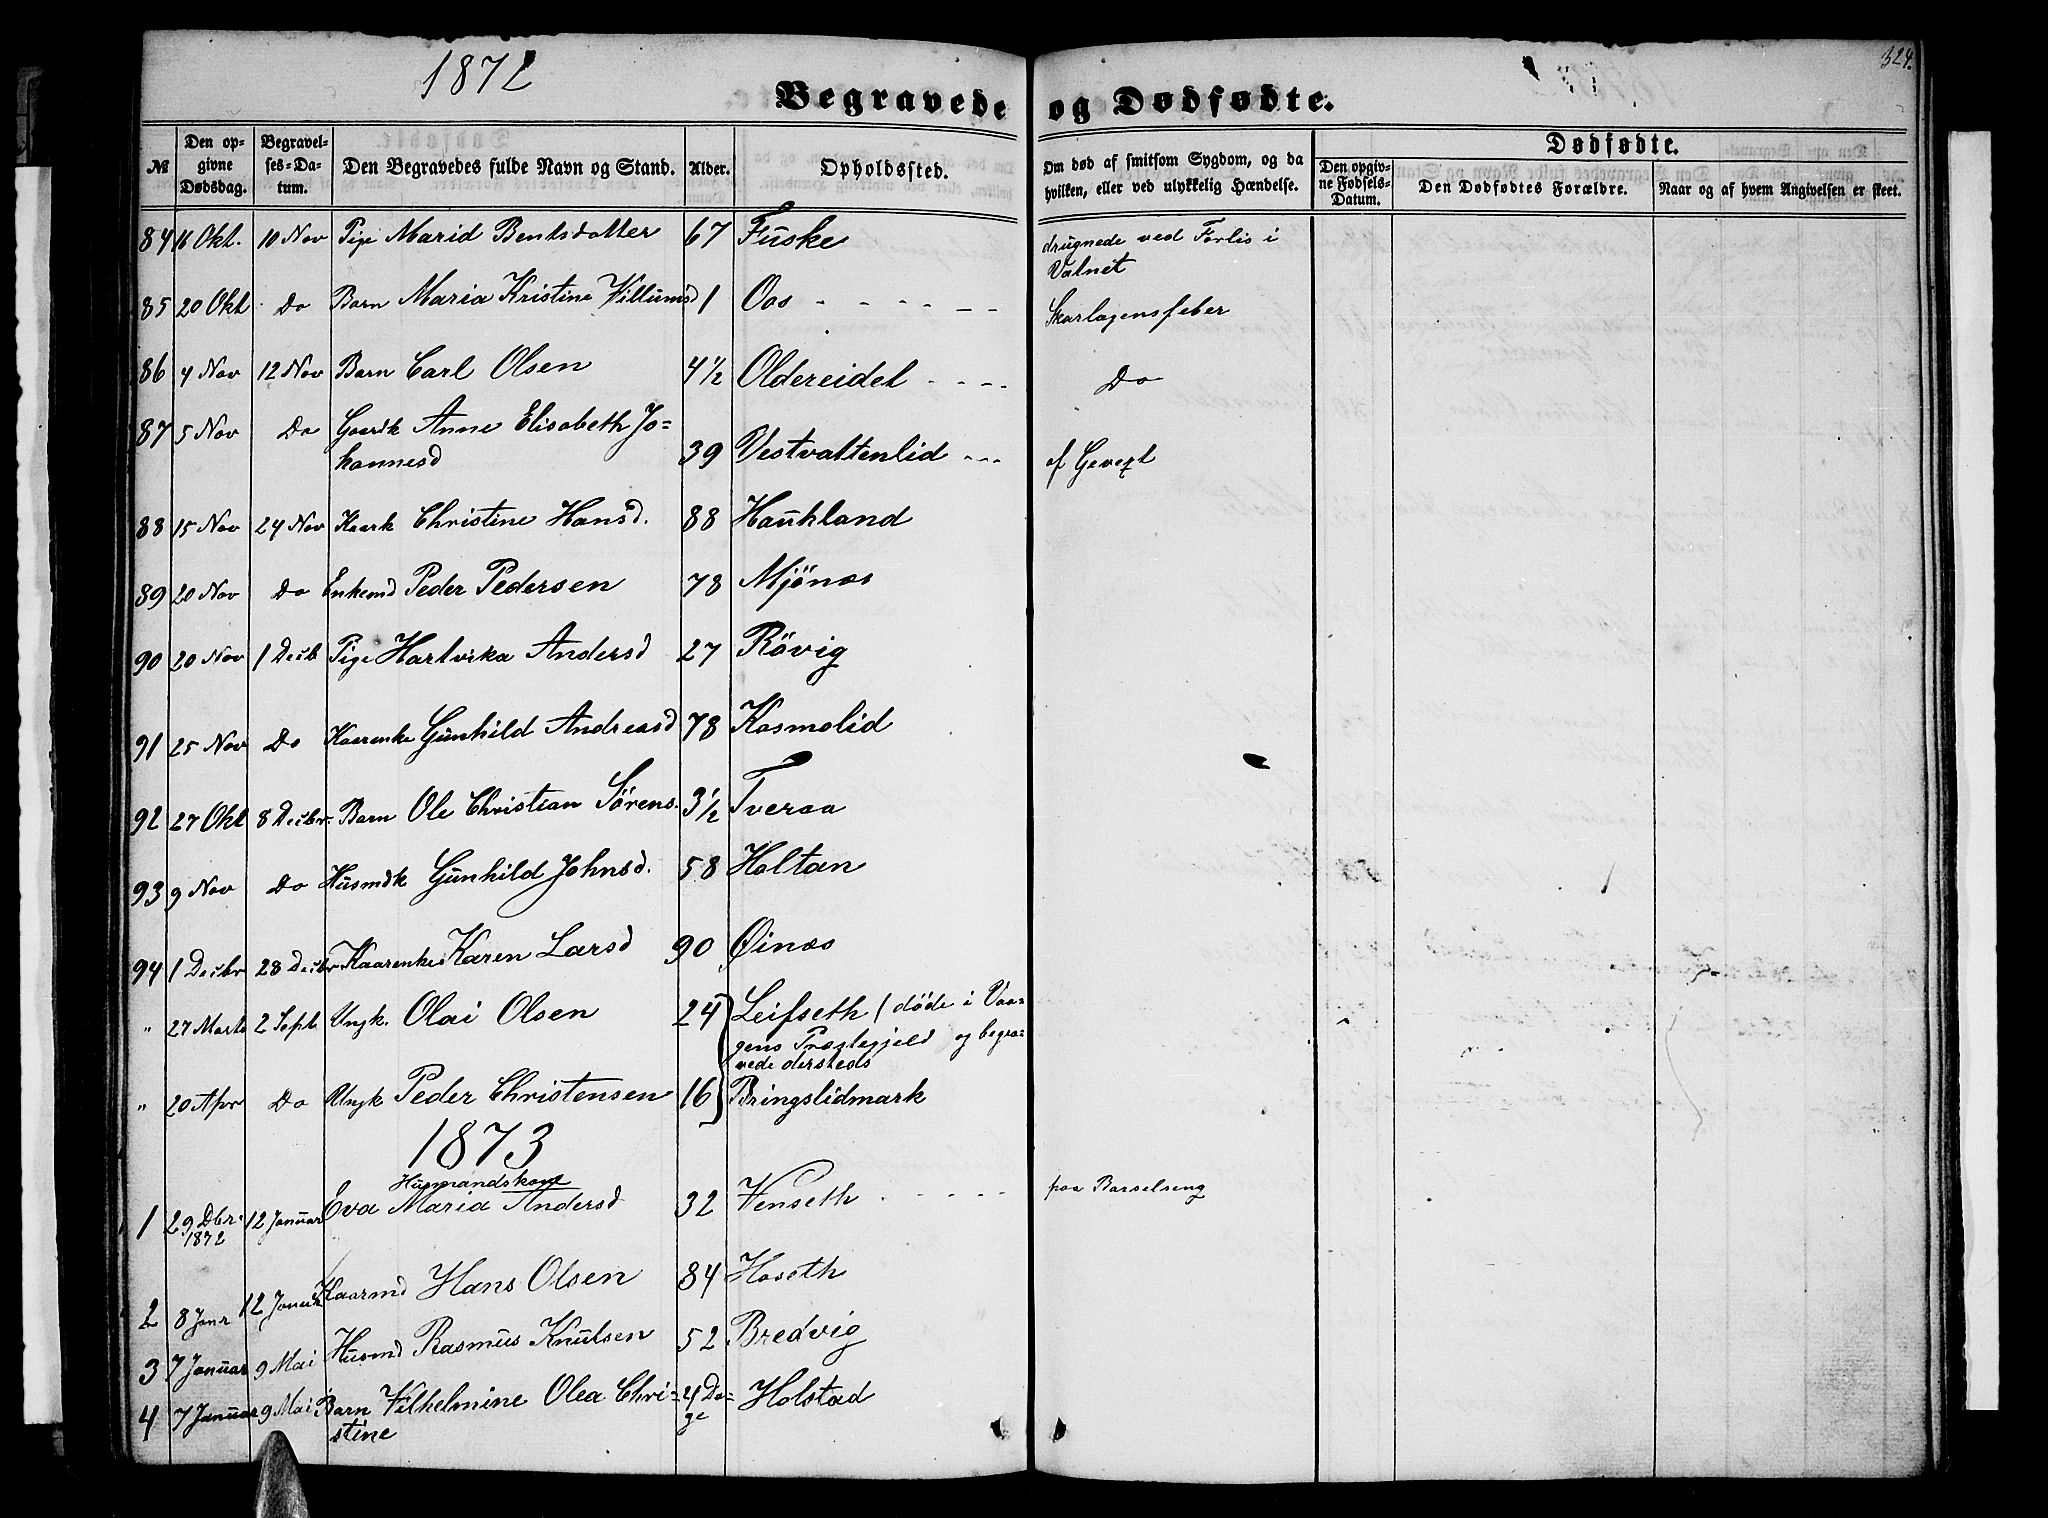 1872
324.
Begravede og Dødfødte.
No
Den op-
givne
Dødsdag.
Begravel-
ses-Da-
tum.
Den Begravedes fulde Navn og Stand.
Alder.
Opholdssted.
Om død af smitsom Sygdom, og da
hvilken, eller ved ulykkelig Hændelse.
Dødfødte.
Den opgiv-
ne Fødsels-
Datum.
Den Dødfødtes Forældre.
Naar og af hvem Angivelsen er skeet.
84 16 Okt. 10 Nov Pige Marid Bentsdatter 67 Fuske drugnede ved Forlis i
Vatnet
85 20 Okt. Do Barn Maria Kristine Villumsd 1 Oos - - - - - - Skarlagensfeber
86 4 Nov 12 Nov Barn Carl Olsen 4 1/2 Oldereidet - - - - Do
87 5 Nov Do Gaardk Anne Elisabeth Jo-
hannesd 39 Vestvattenlid - - - af Gevext
88 15 Nov 24 Nov Kaark Christine Hansd. 88 Haukland
89 20 Nov Do Enkemd Peder Pedersen 78 Mjönæs
90 20 Nov 1 Decb Pige Hartvika Andersd 27 Rövig
91 25 Nov Do Kaarenke Gunhild Andreasd 78 Kosmolid
92 27 Okt 8 Decbr. Barn Ole Christian Sörens. 3 1/2 Tveraa
93 9 Nov Do Husmdk Gunhild Johnsd. 58 Holtan
94 1 Decbr 28 Decbr Kaarenke Karen Larsd 90 Øinæs
" 27 Marts 2 Sept Ungk. Olai Olsen 24 Leifseth / döde i Vaa-
gens Præstegjeld og begra-
vede dersteds
" 20 Apr Do Ungk Peder Christensen 16 Bringslidmark
1873
Husmandskone
1 29 Dbr. 12 Januar Eva Maria Andersd 32 Venseth - - - - - paa Barselseng
1872
2 8 Janr 12 Januar Kaarmd Hans Olsen 84 Hoseth
3 7 Januar 9 Mai Husmd Rasmus Knutsen 52 Bredvig
4 7 Januar 9 Mai Barn Vilhelmine Olea Chri-
stine 4 Da-
ge Holstad